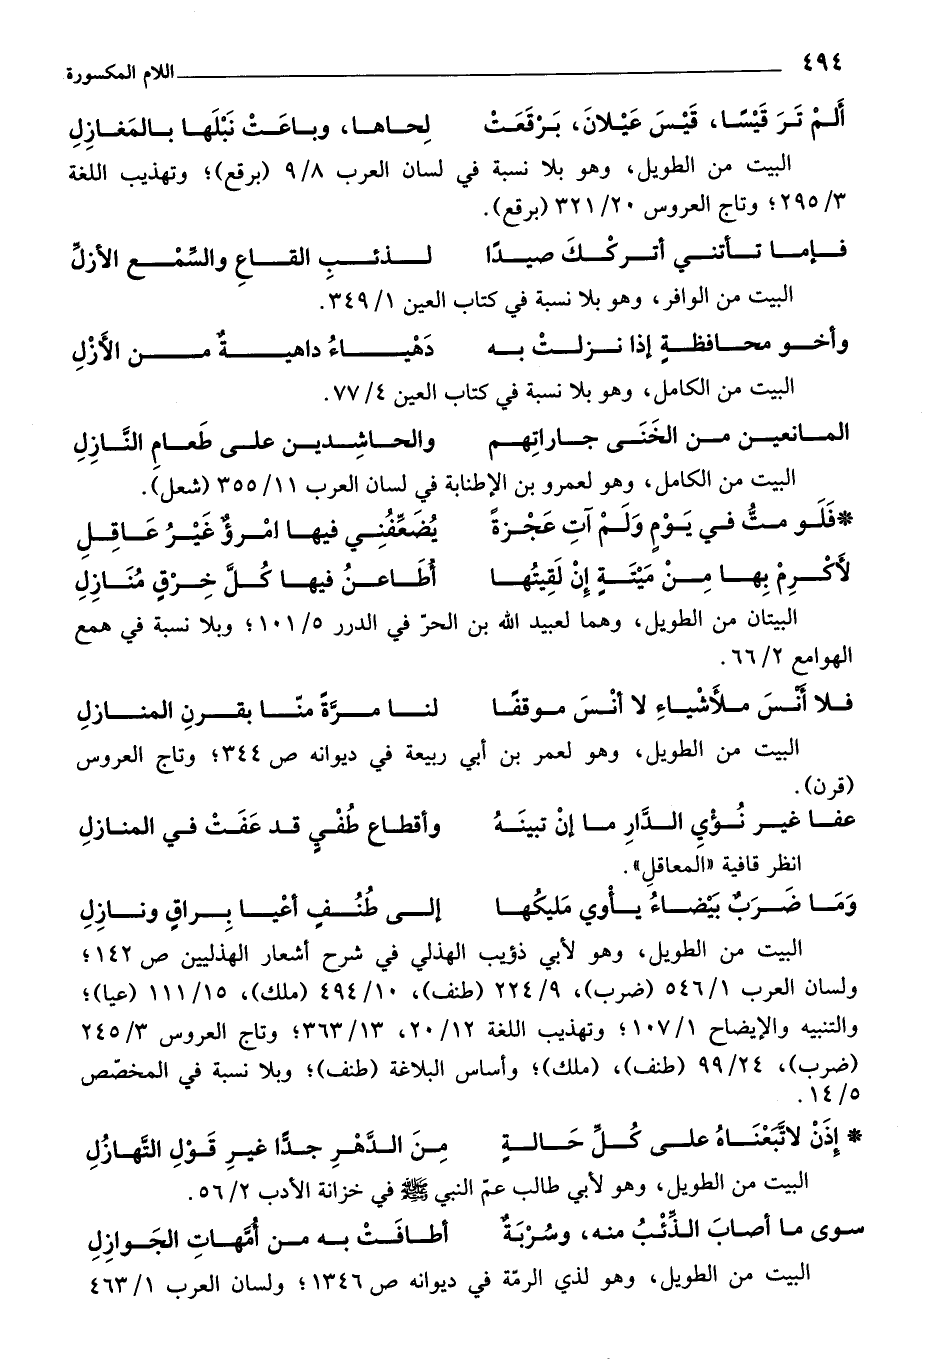 ٤٩٤ اللام المكسورة
أَلَمْ تَرَ قَيْسًا، قَيْسَ عَيْلانَ، بَرْقَعَتْ لِحاها، وباعَتْ نَبْلَها بالمَغازِلِ
البيت من الطويل، وهو بلا نسبة في لسان العرب ٩/٨ (برقع)؛ وتهذيب اللغة
٢٩٥/٣؛ وتاج العروس ٣٢١/٢٠ (برقع).
فإما تأتني أتركْكَ صيدًا لذئبِ القاعِ والسِّمْعِ الأزلِّ
البيت من الوافر، وهو بلا نسبة في كتاب العين ٣٤٩/١.
وأخو محافظةٍ إذا نزلتْ به دَهْياءُ داهيةٌ من الأَزْلِ
البيت من الكامل، وهو بلا نسبة في كتاب العين ٧٧/٤.
المانعين من الخَنَى جاراتِهم والحاشِدين على طَعامِ النَّازِلِ
البيت من الكامل، وهو لعمرو بن الإطنابة في لسان العرب ٣٥٥/١١ (شعل).
*فَلَو متُّ في يَوْمٍ وَلَمْ آتِ عَجْزةً يُضَعِّفُنِي فيها امْرؤٌ غَيْرُ عَاقِلِ
لأَكْرِمْ بِها مِنْ مَيْتَةٍ إِنْ لَقِيتُها أُطَاعنُ فيها كُلَّ خِرْقٍ مُنَازِلِ
البيتان من الطويل، وهما لعبيد الله بن الحرّ في الدرر ١٠١/٥؛ وبلا نسبة في همع
الهوامع ٦٦/٢.
فلا أَنْسَ ملأشْياءِ لا أنْسَ موقفًا لنا مرَّةً منّا بقرنِ المنازلِ
البيت من الطويل، وهو لعمر بن أبي ربيعة في ديوانه ص ٣٤٤؛ وتاج العروس
(قرن).
عفا غير نُؤْيِ الدَّارِ ما إنْ تبينَهُ وأقطاع طُفْيٍ قد عَفَتْ في المنازلِ
انظر قافية «المعاقلِ».
وَمَا ضَرَبٌ بَيْضاءُ يأوي مَليكُها إلى طُنُفٍ أعْيا بِراقٍ ونازِلِ
البيت من الطويل، وهو لأبي ذؤيب الهذلي في شرح أشعار الهذليين ص ١٤٢؛
ولسان العرب ٥٤٦/١ (ضرب)، ٢٢٤/٩ (طنف)، ٤٩٤/١٠ (ملك)، ١١١/١٥ (عيا)؛
والتنبيه والإيضاح ١٠٧/١؛ وتهذيب اللغة ٢٠/١٢، ٣٦٣/١٣؛ وتاج العروس ٢٤٥/٣
(ضرب)، ٩٩/٢٤ (طنف)، (ملك)؛ وأساس البلاغة (طنف)؛ وبلا نسبة في المخصّص
١٤/٥.
* إِذَنْ لاتَّبَعْنَاهُ على كُلِّ حَالةٍ مِنَ الدَّهْرِ جدًّا غيرِ قَوْلِ التَّهازُلِ
البيت من الطويل، وهو لأبي طالب عمّ النبي ﷺ في خزانة الأدب ٥٦/٢.
سوى ما أصابَ الذِّئْبُ منه، وسُرْبَةٌ أطافَتْ به من أُمَّهاتِ الجَوازِلِ
البيت من الطويل، وهو لذي الرمّة في ديوانه ص ١٣٤٦؛ ولسان العرب ٤٦٣/١